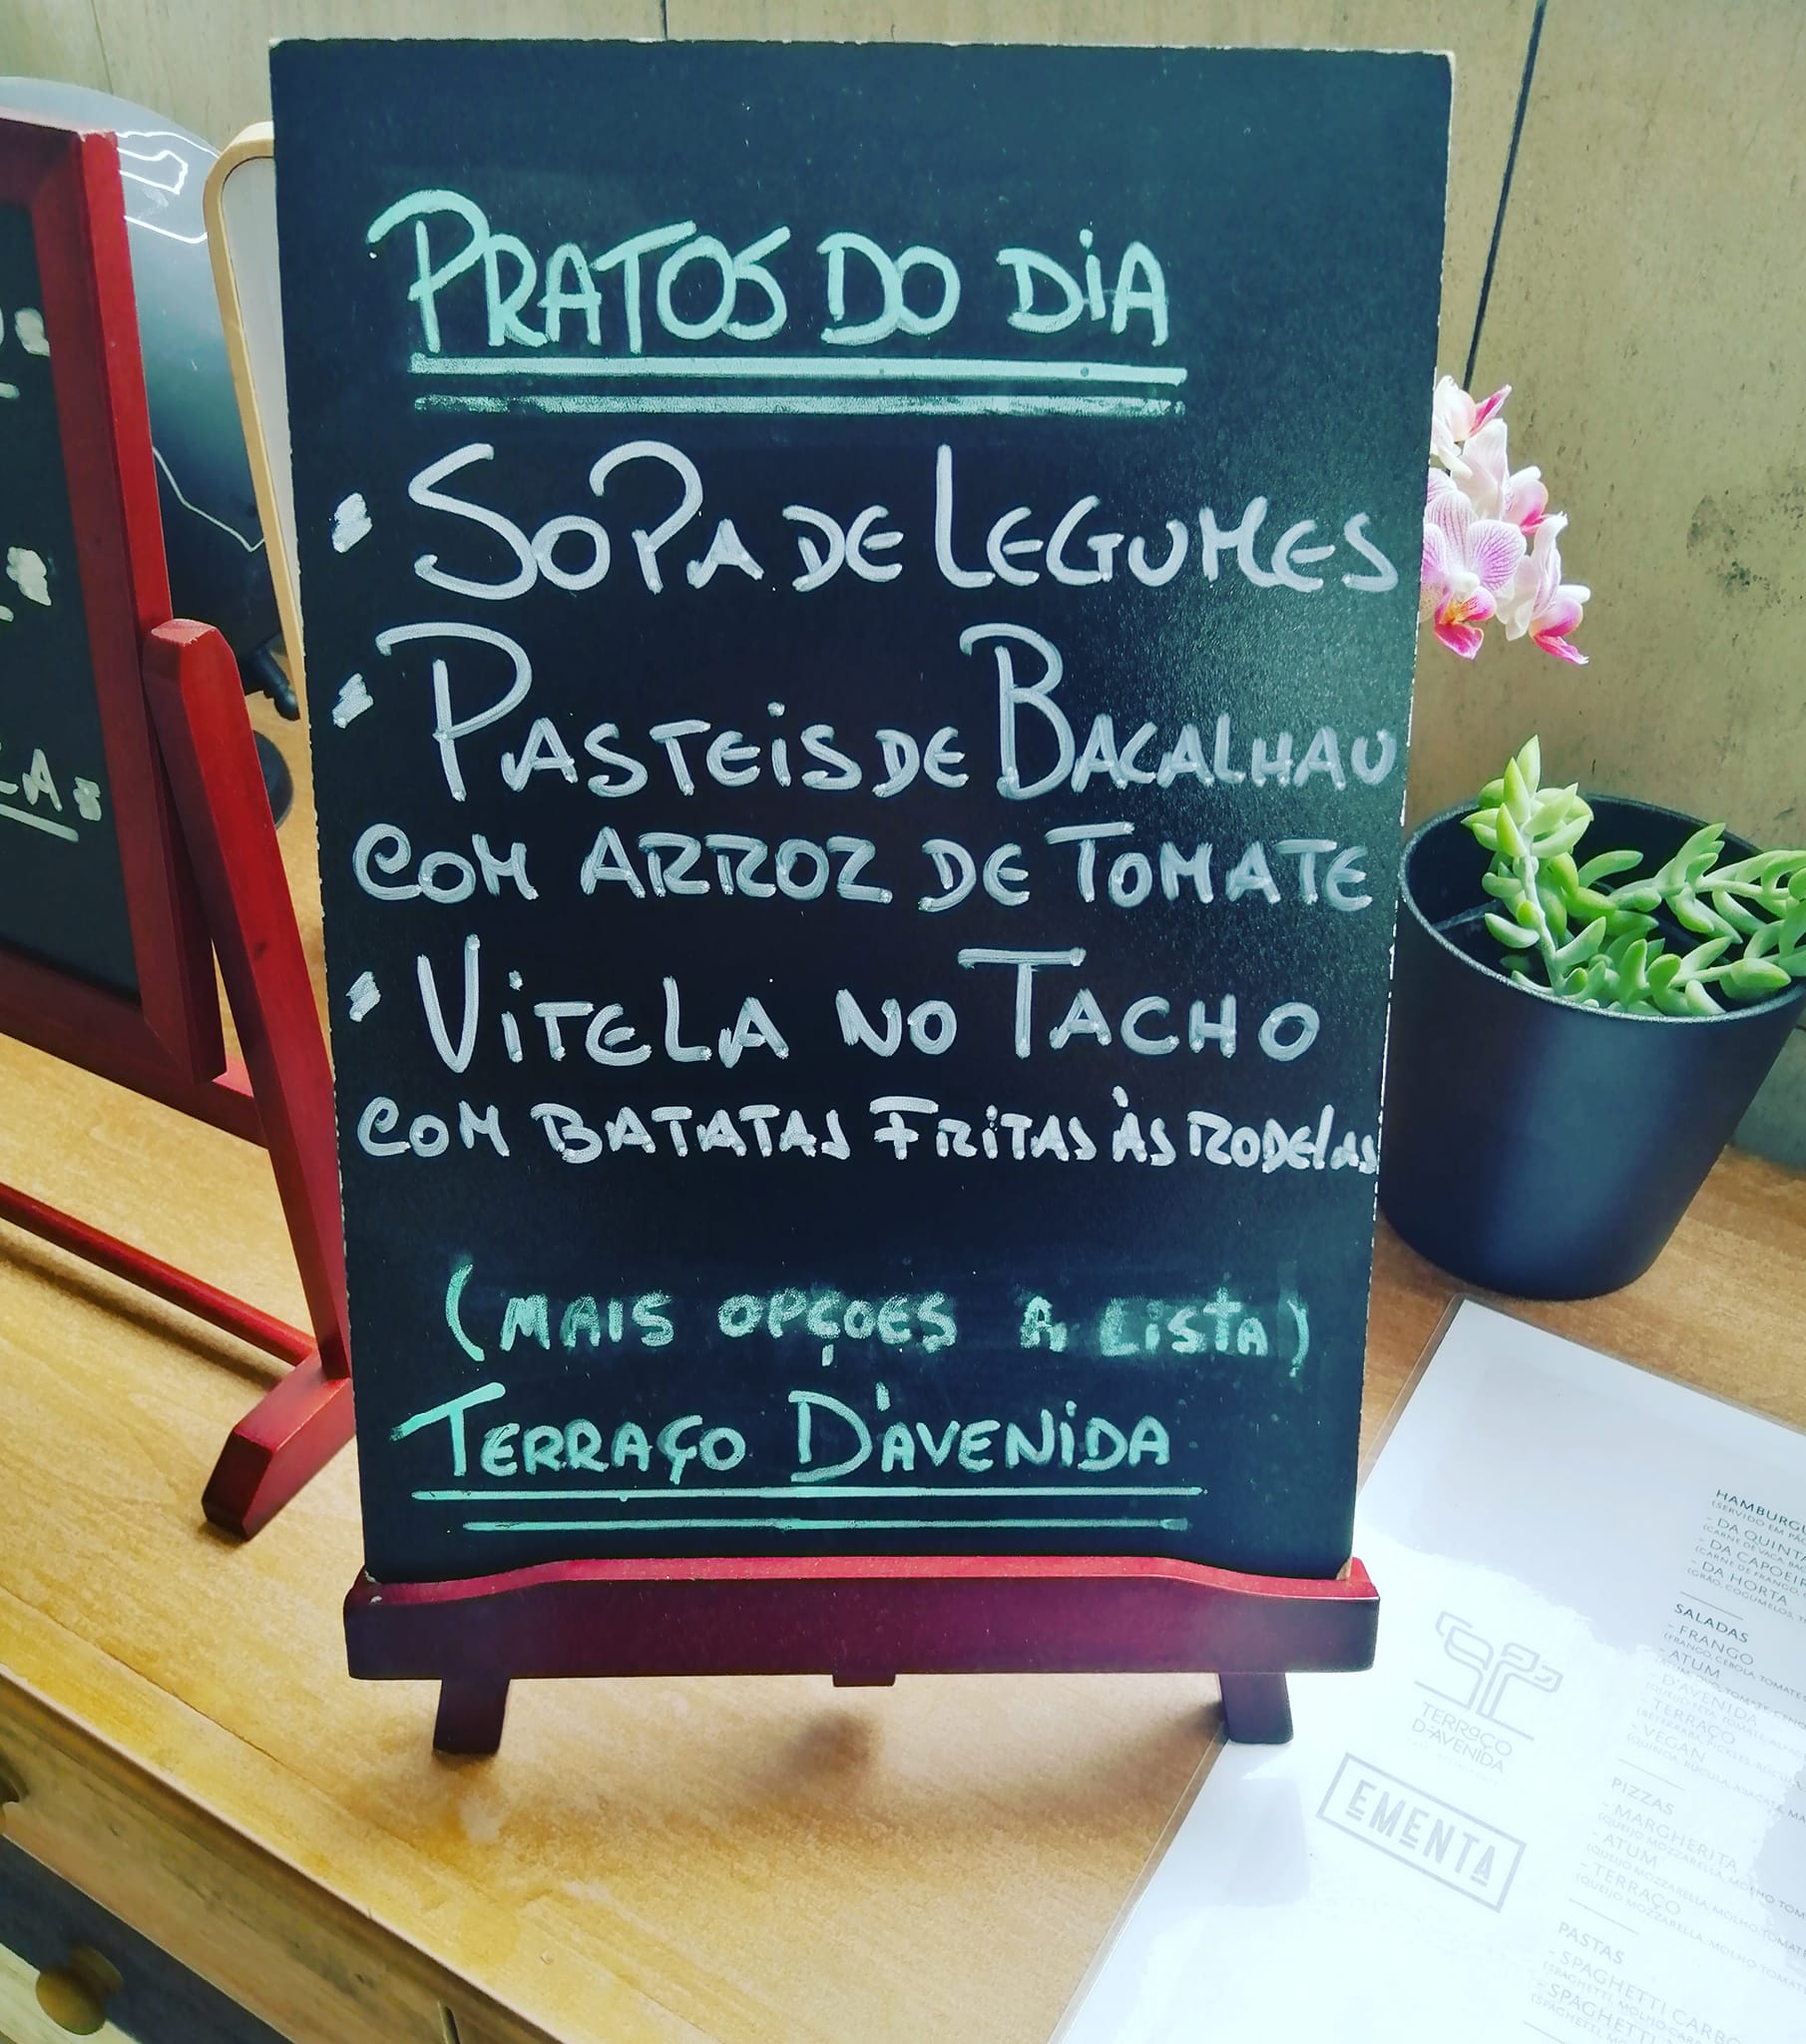 PRATOS DO DIA
SOPA DE LEGUMES
PASTEIS DE BACALHAU
COM ARROZ DE TOMATE
VITELA NO TACHO
COM BATATAS FRITAS ÀS RODELAS
(MAIS OPÇOES À LISTA)
TERRAÇO D'AVENIDA
TERRAÇO
D'AVENIDA
EMENTA
- DA HORTA
SALADAS
- FRANGO
- ATUM
- D'AVENIDA
- TERRAÇO
- VEGAN
PIZZAS
- MARGHERITA
- ATUM
- TERRAÇO
PASTAS
- SPAGHETTI
- SPAGHETTI